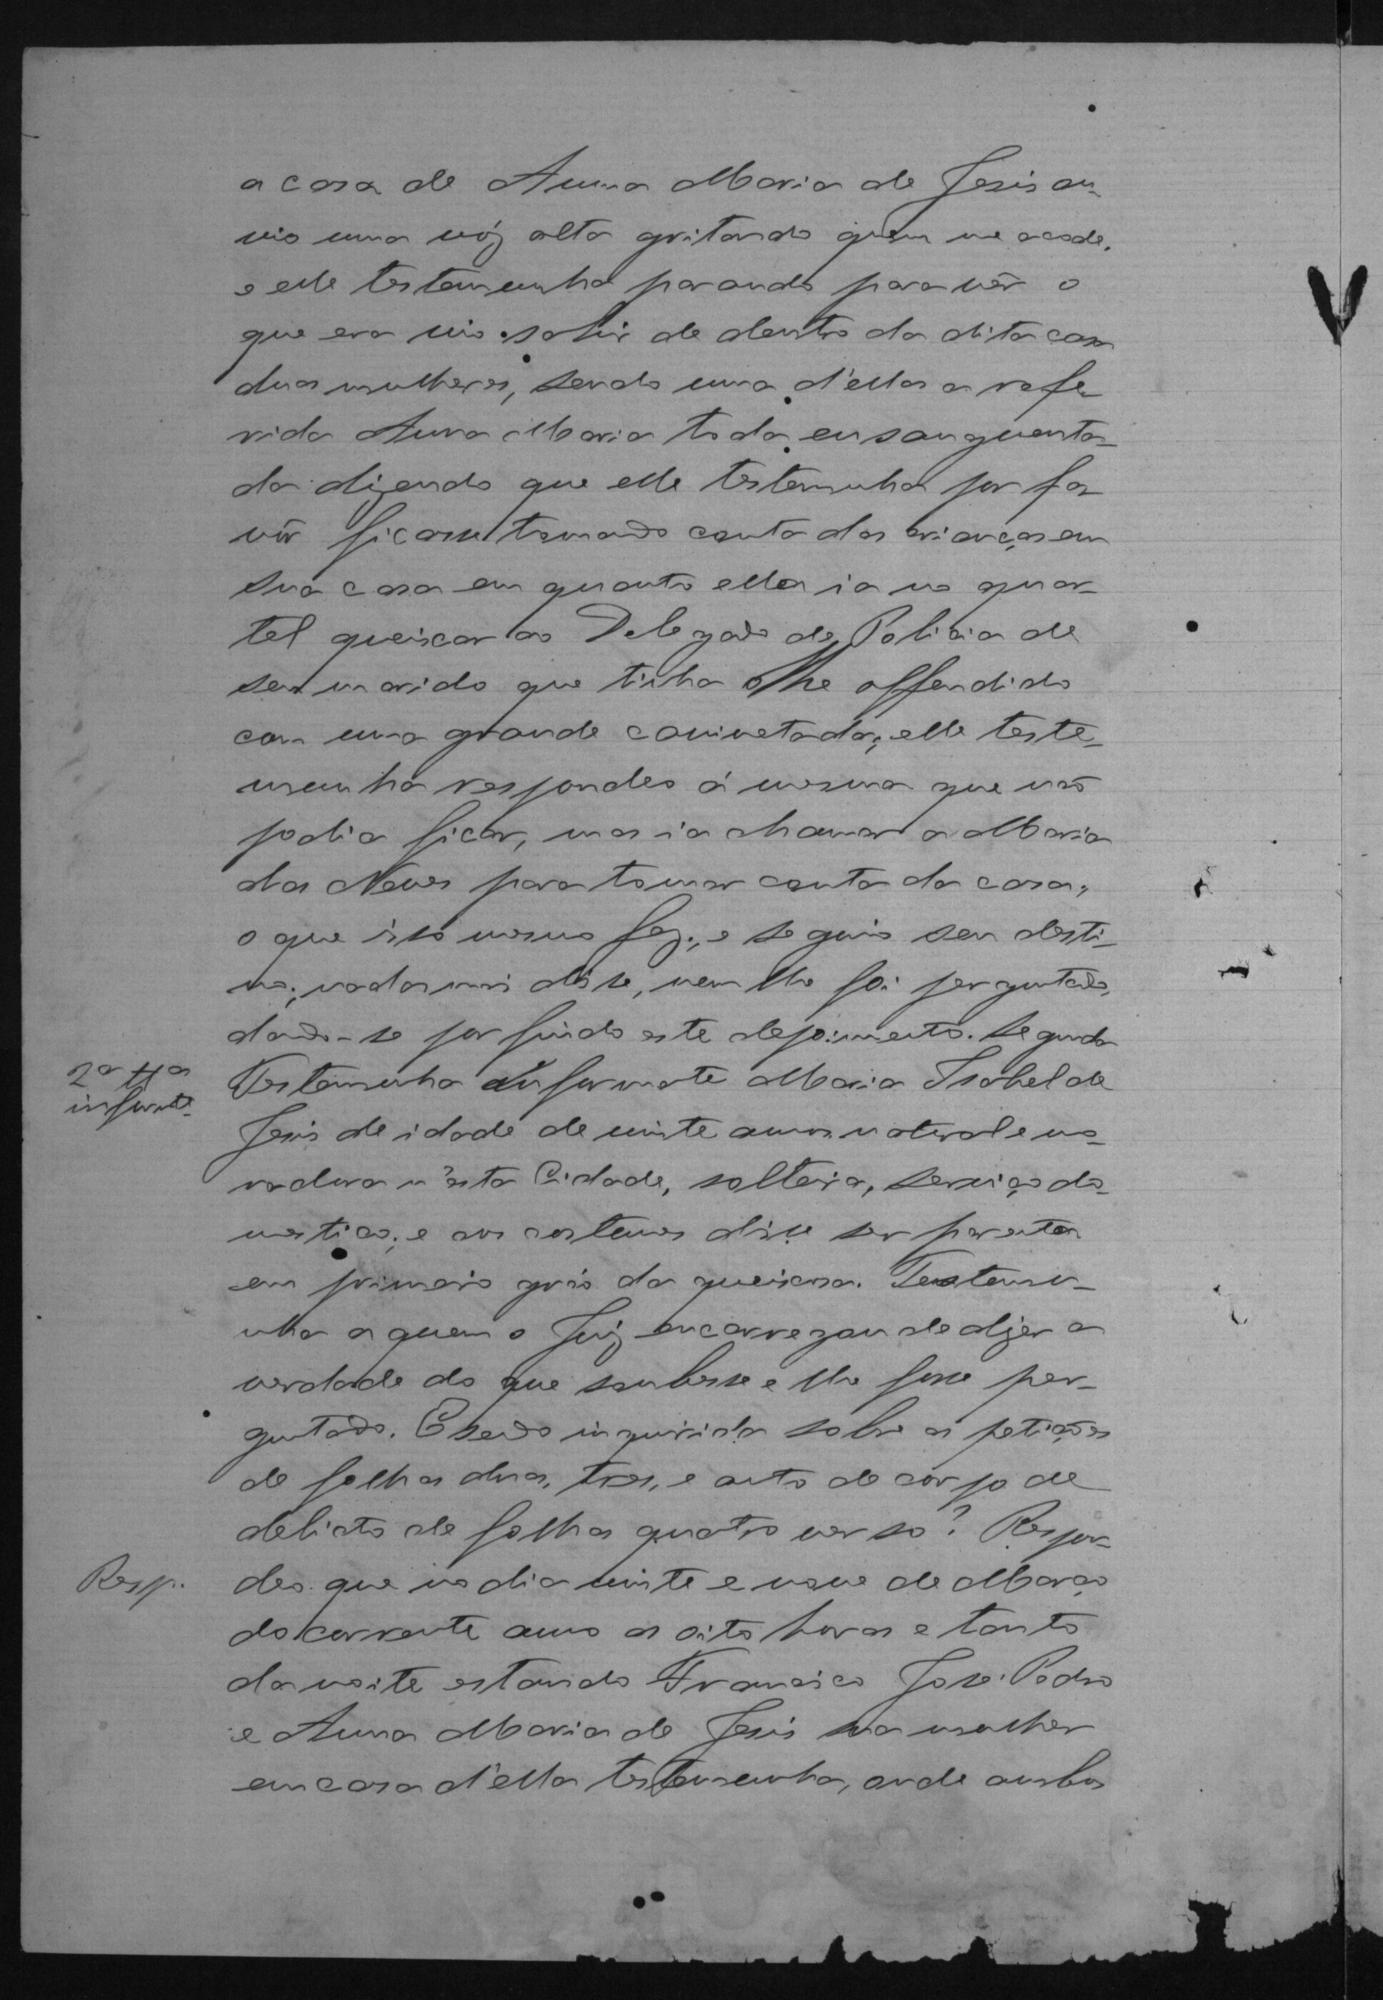 a casa de Anna Maria de Jesus ou-
vio uma vóz alta gritando quem me acode,
e elle testemunha parando para vêr o
que era vio sahir de dentro da dita casa
duas mulheres, sendo uma d'ellas a refe-
rida Anna Maria toda ensanguenta-
da dizendo que elle testemunha por fa-
vôr ficasse tomando conta das crianças em
sua casa em quanto ella ia no quar-
tel queixar ao Delegado de Policia de
seu marido que tinha lhe offendido
com uma grande canivetada; elle teste-
munha respondeo á mesma que não
podia ficar, mas ia chamar a Maria
das Neves para tomar conta da casa,
o que isso mesmo fez, e seguio seu desti-
no; nada mais disse, nem lhe foi perguntado,
dando-se por findo este depoimento. Segunda
2ª ttª
informte.
Testemunha informante Maria Isabel de
Jesus de idade de vinte annos natural e mo-
radora n'esta Cidade, solteira, serviço do-
mestico; e aos costumes disse ser parenta
em primeiro gráo da queixosa. Testemu-
nha a quem o Juiz encarregou de dizer a
verdade do que soubesse e lhe fosse per-
guntado. E sendo inquirida sobre as petições
de folhas duas, tres, e auto de corpo de
delicto de folhas quatro verso? Respon-
Resp.
deo que no dia vinte e nove de Março
do corrente anno as oito horas e tanto
da noite estando Francisco José Pedro
e Anna Maria de Jesus sua mulher
em casa d'ella testemunha, onde ambos